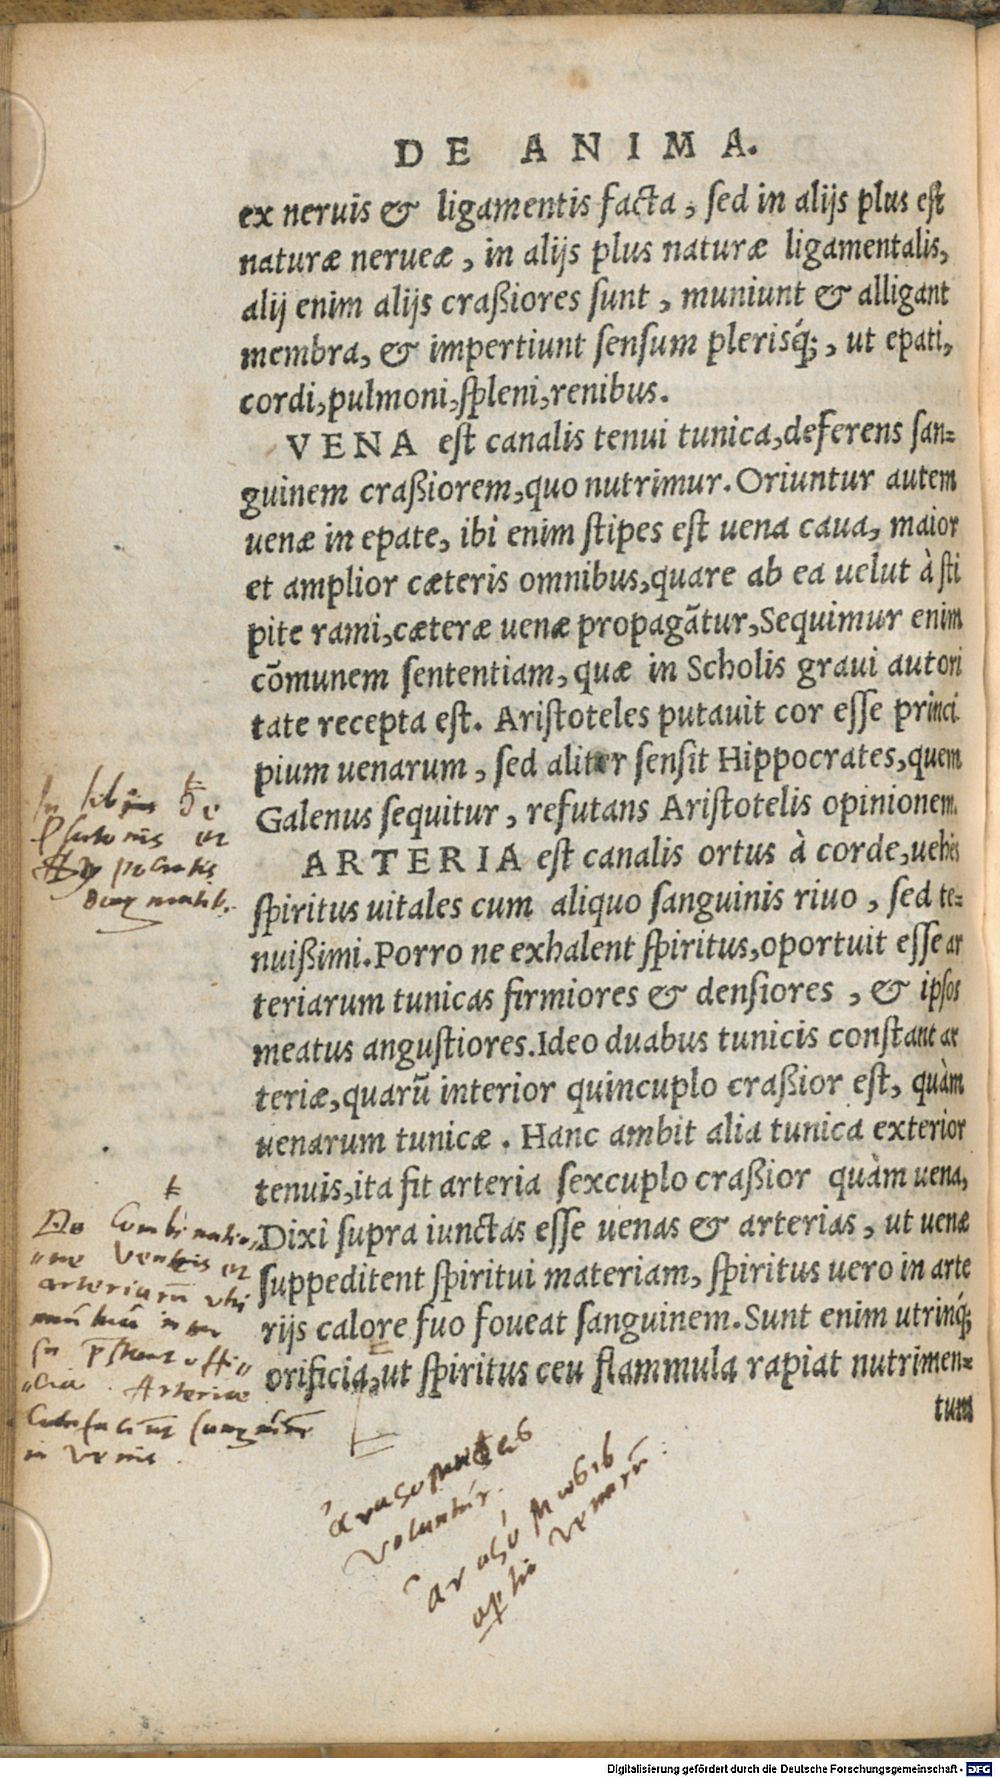 DE ANIMA.
ex neruis & ligamentis facta, sed in alijs plus est
naturæ nerueæ, in alijs plus naturæ ligamentalis,
alij enim alijs craßiores sunt, muniunt & alligant
membra, & impertiunt sensum plerisq́;, ut epati,
cordi, pulmoni, spleni, renibus.
VENA est canalis tenui tunica, deferens san=
guinem craßiorem, quo nutrimur. Oriuntur autem
uenæ in epate, ibi enim stipes est uena caua, maior
et amplior cæteris omnibus, quare ab ea uelut à sti
pite rami, cæteræ uenæ propagãtur, Sequimur enim
cõmunem sententiam, quæ in Scholis graui autori
tate recepta est. Aristoteles putauit cor esse princi
pium uenarum, sed aliter sensit Hippocrates, quem
Galenus sequitur, refutans Aristotelis opinionem.
ARTERIA est canalis ortus à corde, uehẽs
spiritus uitales cum aliquo sanguinis riuo, sed te=
nuißimi. Porro ne exhalent spiritus, oportuit esse ar
teriarum tunicas firmiores & densiores, & ipsos
meatus angustiores. Ideo duabus tunicis constant ar
teriæ, quarũ interior quincuplo craßior est, quàm
uenarum tunicæ. Hanc ambit alia tunica exterior
tenuis, ita fit arteria sexcuplo craßior quàm uena,
Dixi supra iunctas esse uenas & arterias, ut uenæ
suppeditent spiritui materiam, spiritus uero in arte
rijs calore suo foueat sanguinem. Sunt enim utrinq́;
orificia, ut spiritus ceu flammula rapiat nutrimen=
tum
et
De Combinatio
ne et
arteriarũ
Arteriae
in venis.
venarũ
Digitalisierung gefördert durch die Deutsche Forschungsgemeinschaft - DFG